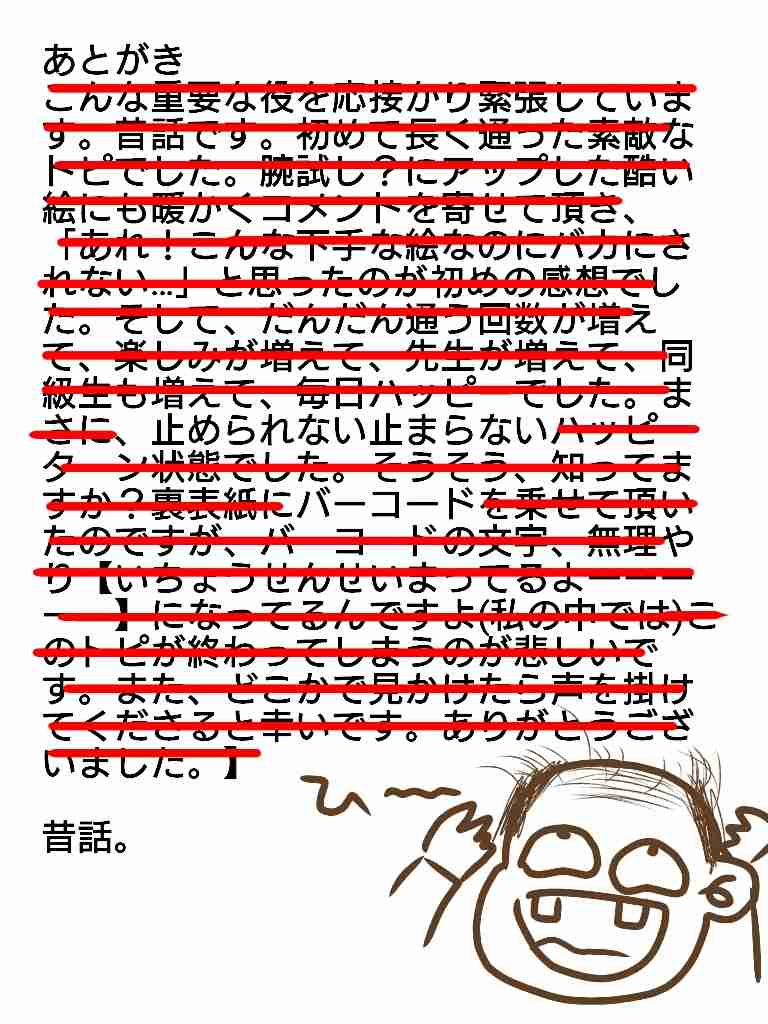 あとがき
こんな重要な役を応接かり緊張していま
す。昔話です。初めて長く通った素敵な
トピでした。腕試し？にアップした酷い
絵にも暖かくコメントを寄せて頂き、
「あれ！こんな下手な絵なのにバカにさ
れない…」と思ったのが初めの感想でし
た。そして、だんだん通う回数が増え
て、楽しみが増えて、先生が増えて、同
級生も増えて、毎日ハッピーでした。ま
さに、止められない止まらないハッピ
ターン状態でした。そうそう、知ってま
すか？裏表紙にバーコードを乗せて頂い
たのですが、バーコードの文字、無理や
り【いちょうせんせいまってるよーーー
ーー】になってるんですよ(私の中では)こ
のトピが終わってしまうのが悲しいで
す。また、どこかで見かけたら声を掛け
てくださると幸いです。ありがとうござ
いました。】
昔話。
ひ〜〜